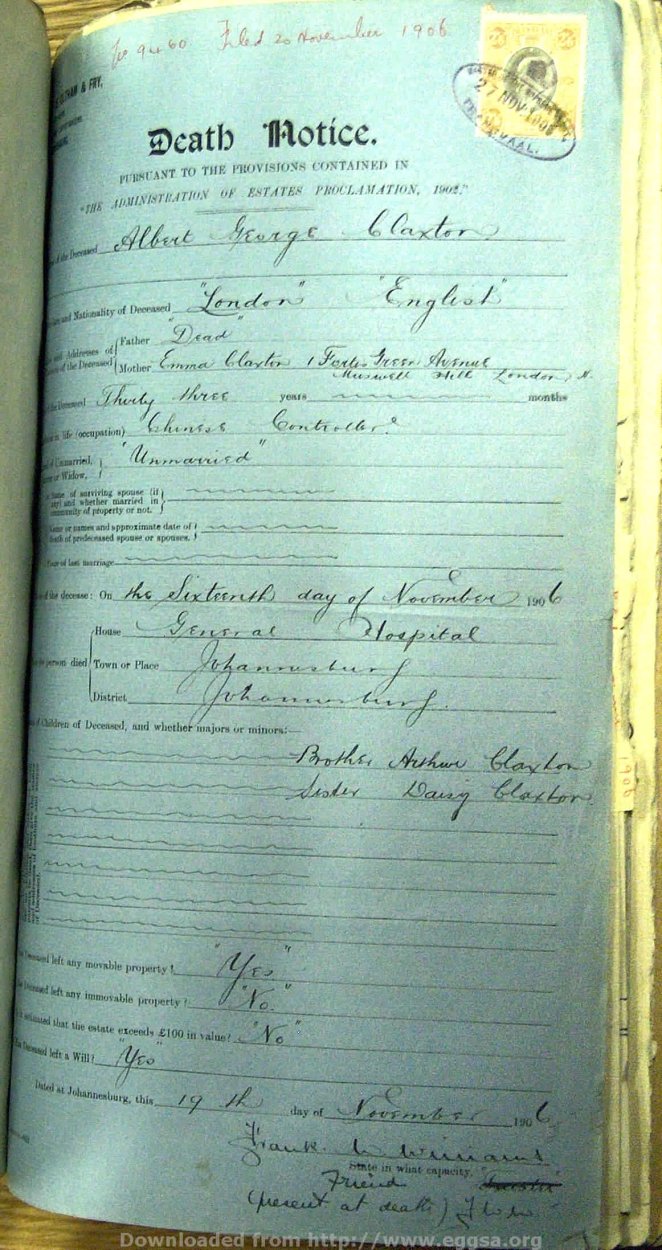 9460 Filed 20 November 1906
& FRY,
27 NOV 1906
TRANSVAAL.
Death Notice.
PURSUANT TO THE PROVISIONS CONTAINED IN
"THE ADMINISTRATION OF ESTATES PROCLAMATION, 1902."
of the Deceased Albert George Claxton
and Nationality of Deceased "London" "English"
and Addresses of of the Deceased Father "Dead"
Mother Emma Claxton 1 Fortis Green Avenue
Muswell Hill London N.
the Deceased Thirty three years months
in life (occupation) Chinese Controller
Unmarried, or Widow, "Unmarried"
Name of surviving spouse (if any) and whether married in community of property or not.
Name or names and approximate date of death of predeceased spouse or spouses.
Place of last marriage
of the decease: On the Sixteenth day of November 1906
House General Hospital
person died Town or Place Johannesburg
District Johannesburg.
Children of Deceased, and whether majors or minors:—
Brother Arthur Claxton
Sister Daisy Claxton
Deceased left any movable property? "Yes"
Deceased left any immovable property? "No."
estimated that the estate exceeds £100 in value? "No"
Deceased left a Will? "Yes"
Dated at Johannesburg, this 19th day of November 1906
Frank Williams
State in what capacity.
Friend
(present at death)
Downloaded from http://www.eggsa.org